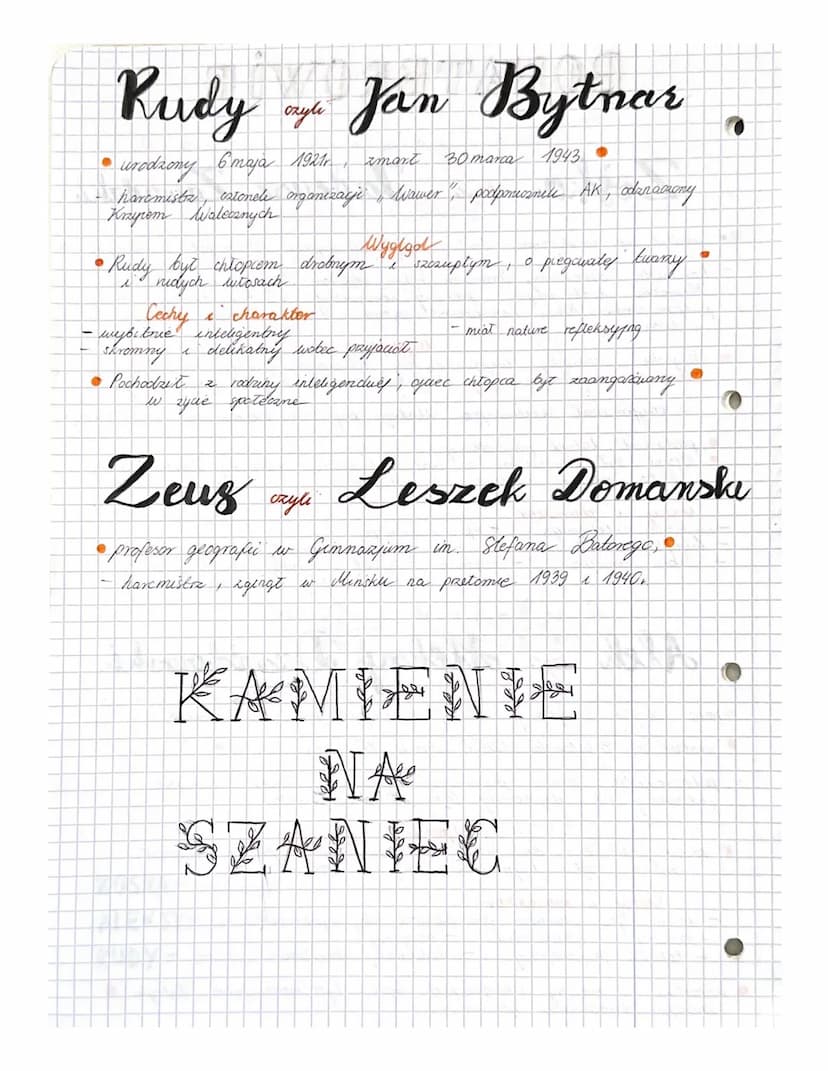 Rudy czyli Jan Bytnar
• urodzony 6 maja 1921r, zmarł 30 marca 1943. •
- harcmistrz, członek organizacji „Wawer", podporucznik AK, odznaczony
Krzyżem Walecznych
Wygląd
• Rudy był chłopcem drobnym i szczupłym, o piegowatej twarzy •
i rudych włosach
Cechy i charakter
- wybitnie inteligentny - miał naturę refleksyjną
- skromny i delikatny wobec przyjaciół
• Pochodził z rodziny inteligenckiej, ojciec chłopca był zaangażowany •
w życie społeczne
Zeus czyli Leszek Domański
• profesor geografii w Gimnazjum im. Stefana Batorego, •
- harcmistrz, zginął w Mińsku na przełomie 1939 i 1940.
KAMIENIE
NA
SZANIEC